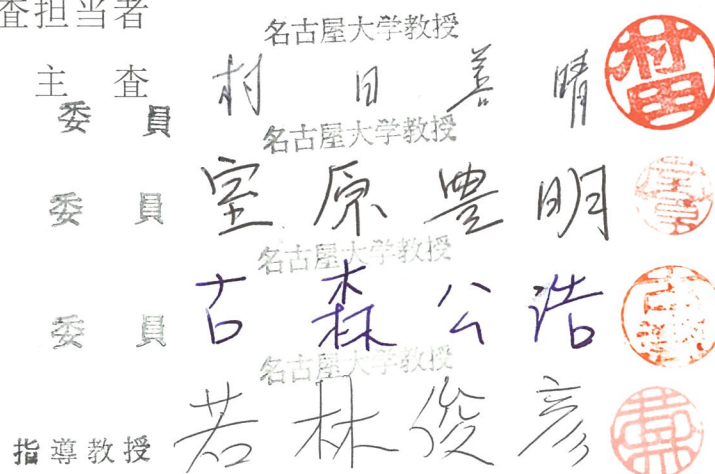 査担当者
名古屋大学教授
主 査 村 日 善 晴
委 員
名古屋大学教授
委 員 室 原 豊 明
名古屋大学教授
委 員 古 森 公 浩
名古屋大学教授
指導教授 若 林 俊 彦